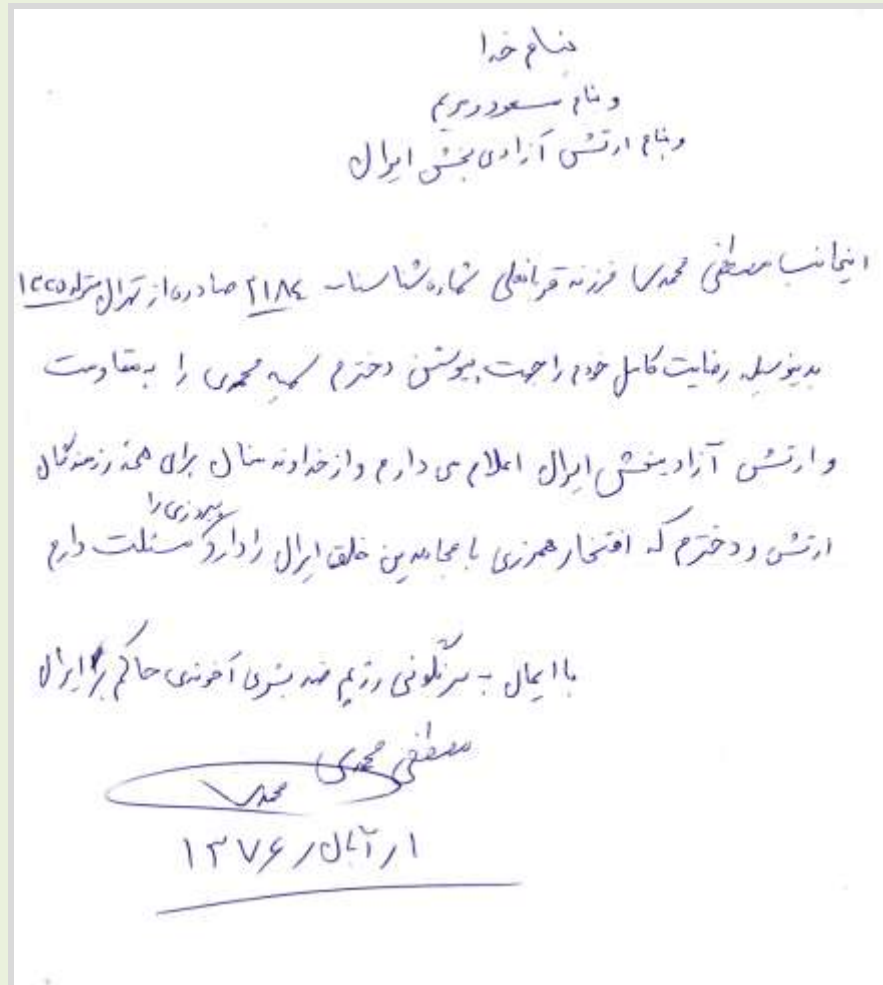 بنام خدا
و بنام مسعود و مریم
و بنام ارتش آزادی بخش ایران
اینجانب مصطفی محمدی فرزند قربانعلی شماره شناسنامه ۲۱۸٤ صادره از تهران متولد ۱۳۳۵
بدینوسیله رضایت کامل خودم را جهت پیوستن دخترم سمیه محمدی را به مقاومت
و ارتش آزادیبخش ایران اعلام می دارم و از خداوند منال برای همهٔ رزمندگان
ارتش و دخترم که افتخار همرزمی با مجاهدین خلق ایران را دارد پیروزی را مسئلت دارم
با ایمان به سرنگونی رژیم ضد بشری آخوندی حاکم بر ایران
مصطفی محمدی
محمدی
۱ ر آبان ر ۱۳۷۶